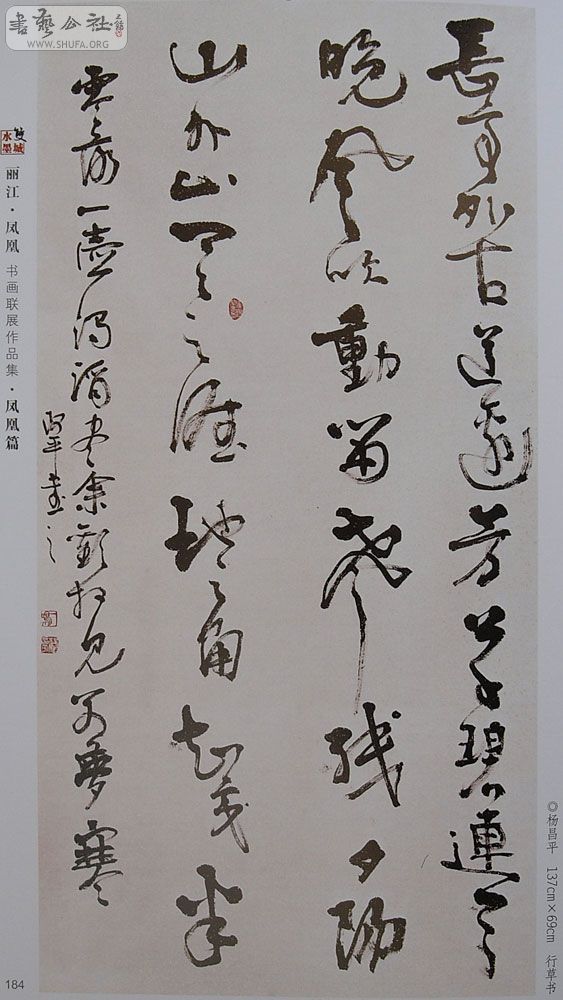 書藝公社
WWW.SHUFA.ORG
長亭外古道邊芳草碧連天
晚風吹動笛聲残夕陽
山外山天之涯地之角知交半
零落一壺濁酒尽余歡見別夢寒
昌平書之
双城水墨
丽江·凤凰 书画联展作品集·凤凰篇
◎杨昌平 137cm×69cm 行草书
184